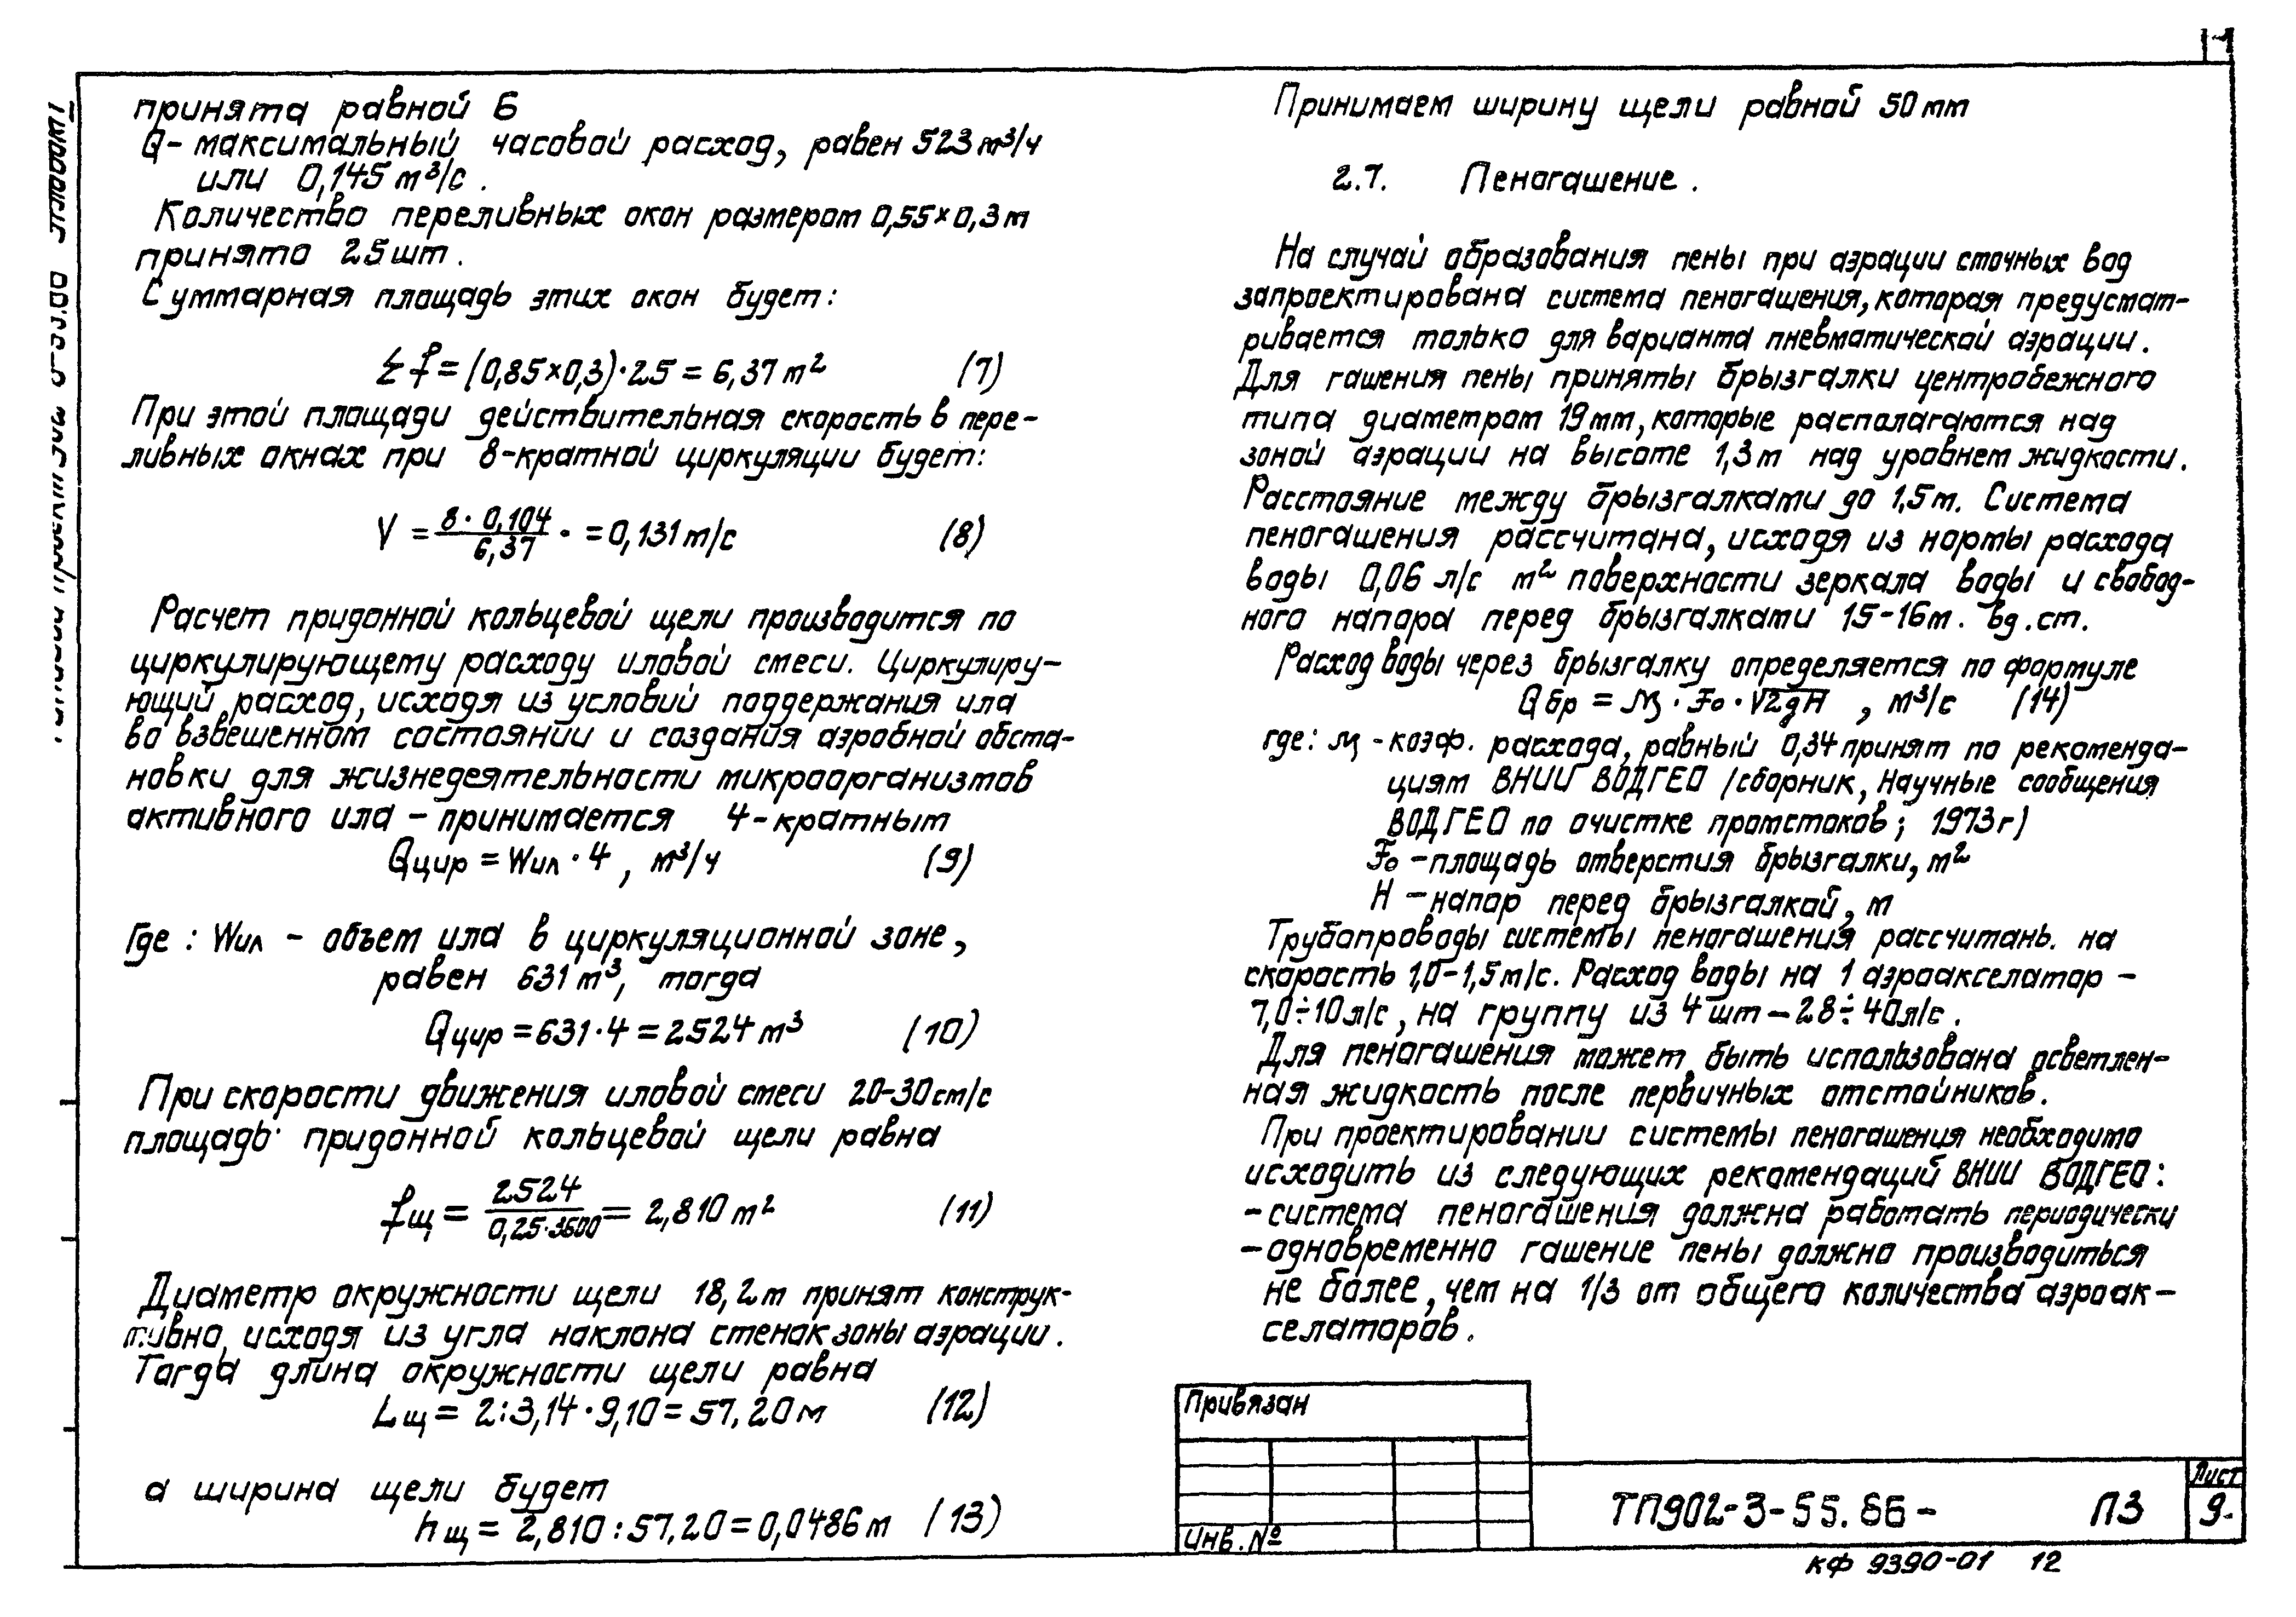 принята равной 6
Q – максимальный часовой расход, равен 523 м³/ч
или 0,145 м³/с.
Количество переливных окон размером 0,55×0,3м
принято 25 шт.
Суммарная площадь этих окон будет:
Σf = (0,85×0,3)·25 = 6,37 м² (7)
При этой площади действительная скорость в пере-
ливных окнах при 8-кратной циркуляции будет:
V = 8·0,104 / 6,37 · = 0,131 м/с (8)
Расчет придонной кольцевой щели производится по
циркулирующему расходу иловой смеси. Циркулиру-
ющий расход, исходя из условий поддержания ила
во взвешенном состоянии и создания аэробной обста-
новки для жизнедеятельности микроорганизмов
активного ила – принимается 4-кратным
Qцир = Wил · 4, м³/ч (9)
Где: Wил – объем ила в циркуляционной зоне,
равен 631 м³, тогда
Qцир = 631·4 = 2524 м³ (10)
При скорости движения иловой смеси 20-30 см/с
площадь придонной кольцевой щели равна
fщ = 2524 / 0,25·3600 = 2,810 м² (11)
Диаметр окружности щели 18,2м принят конструк-
тивно, исходя из угла наклона стенок зоны аэрации.
Тогда длина окружности щели равна
Lщ = 2:3,14·9,10 = 57,20 м (12)
а ширина щели будет
hщ = 2,810 : 57,20 = 0,0486 м (13)
Принимаем ширину щели равной 50 мм
2.7. Пеногашение.
На случай образования пены при аэрации сточных вод
запроектирована система пеногашения, которая предусмат-
ривается только для варианта пневматической аэрации.
Для гашения пены приняты брызгалки центробежного
типа диаметром 19 мм, которые располагаются над
зоной аэрации на высоте 1,3 м над уровнем жидкости.
Расстояние между брызгалками до 1,5 м. Система
пеногашения рассчитана, исходя из нормы расхода
воды 0,06 л/с м² поверхности зеркала воды и свобод-
ного напора перед брызгалками 15-16 м. вд. ст.
Расход воды через брызгалку определяется по формуле
Qбр = M · Fо · √2gH, м³/с (14)
где: M - коэф. расхода, равный 0,34 принят по рекоменда-
циям ВНИИ ВОДГЕО /сборник, Научные сообщения
ВОДГЕО по очистке промстоков; 1973г)
Fо – площадь отверстия брызгалки, м²
H – напор перед брызгалкой, м
Трубопроводы системы пеногашения рассчитань. на
скорость 1,0-1,5 м/с. Расход воды на 1 аэроакселатор –
7,0÷10 л/с, на группу из 4 шт – 28÷40 л/с.
Для пеногашения может быть использована осветлен-
ная жидкость после первичных отстойников.
При проектировании системы пеногашения необходимо
исходить из следующих рекомендаций ВНИИ ВОДГЕО:
– система пеногашения должна работать периодически
– одновременно гашение пены должно производиться
не более, чем на 1/3 от общего количества аэроак-
селаторов.
Привязан
Инв. №
ТП902-3-55.86- ПЗ
Лист
9.
КФ 9390-01 12